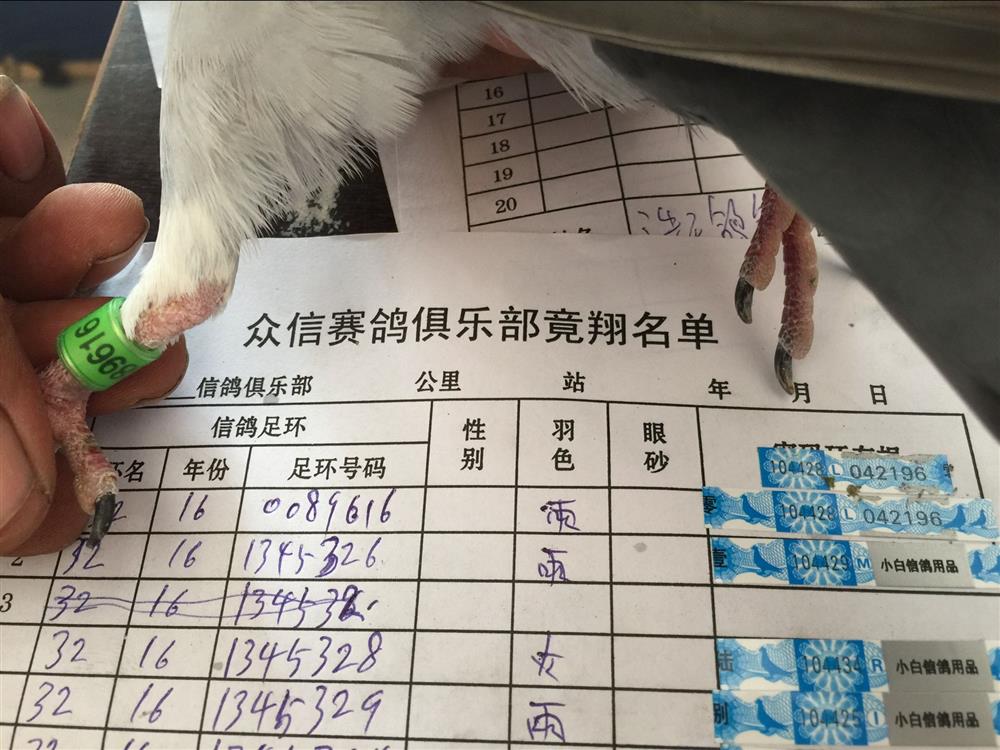 16
17
18
19
20
众信赛鸽俱乐部竟翔名单
89616
信鸽俱乐部 公里 站 年 月 日
信鸽足环 性别 羽色 眼砂
年份 足环号码
104428 L 042196
16 0089616 雨 零 104428 L 042196
2 32 16 1345326 雨 壹 104429 M 小白信鸽用品
3 32 16 134532
32 16 1345328 火 陆 104434 R 小白信鸽用品
32 16 1345329 雨 别 104425 I 小白信鸽用品